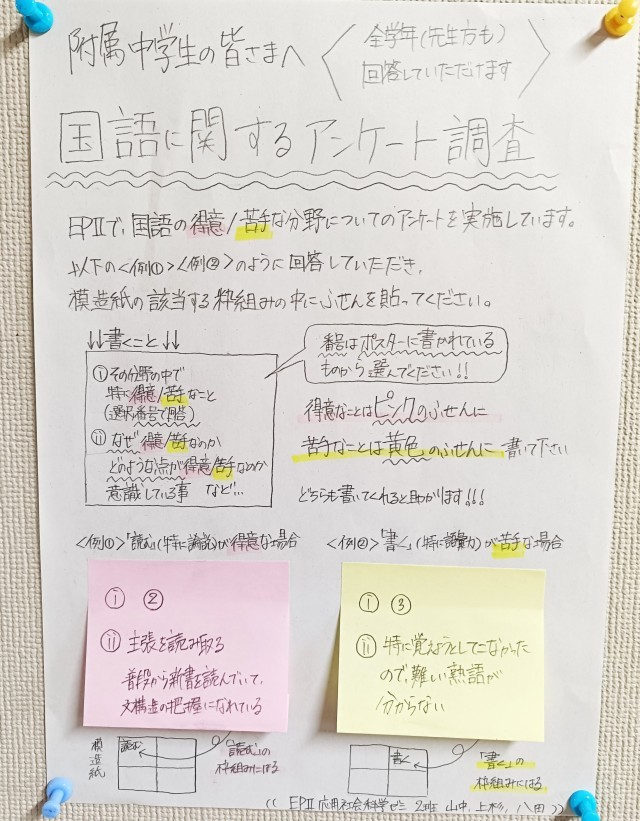 附属中学生の皆さまへ
全学年(先生方も)
回答していただけます
国語に関するアンケート調査
EPⅡで、国語の得意/苦手な分野についてのアンケートを実施しています。
以下の<例①><例②>のように回答していただき、
模造紙の該当する枠組みの中にふせんを貼ってください。
↓↓書くこと↓↓
ⅰその分野の中で
特に得意/苦手なこと
(選択番号で回答)
ⅱなぜ得意/苦手なのか
どのような点が得意/苦手なのか
意識している事 など…
番号はポスターに書かれている
ものから選んでください!!
得意なことはピンクのふせんに
苦手なことは黄色のふせんに書いて下さい
どちらも書いてくれると助かります!!!
<例①>「読む」(特に論説)が得意な場合
ⅰ ②
ⅱ 主張を読み取る
普段から新書を読んでいて、
文構造の把握になれている
模造紙
読む
「読む」の
枠組みにはる
<例②>「書く」(特に語彙力)が苦手な場合
ⅰ ③
ⅱ 特に覚えようとしてこなかった
ので、難しい熟語が
分からない
書く
「書く」の
枠組みにはる
((EPⅡ 応用社会科学ゼミ 2班 山中、上杉、八田))